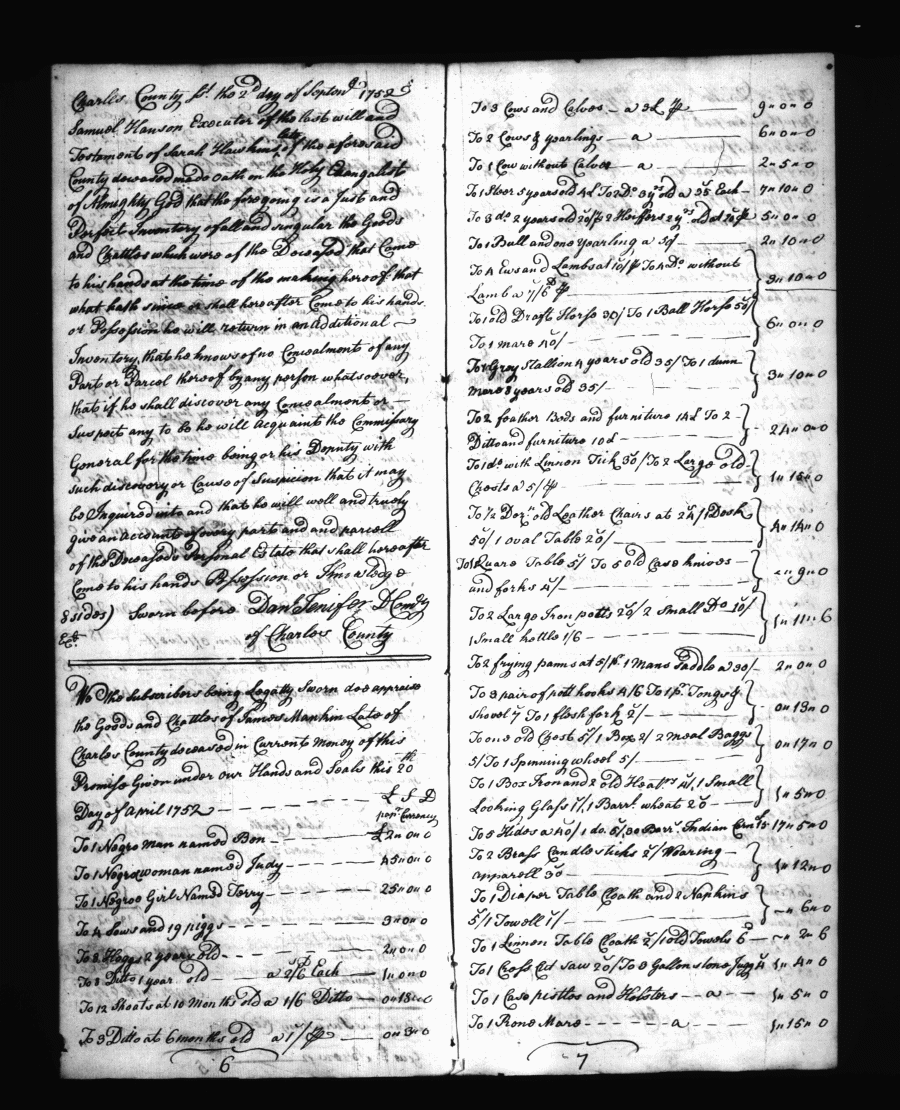 Charles County Sst. the 2d day of Septemr 1752
Samuel Hanson Executor of the last will and
Testament of Sarah Hawkins, late of the aforesaid
County deceased made Oath on the Holy Evangelist
of Almighty God that the foregoing is a Just and
Perfect Inventory of all and singular the Goods
and Chattles which were of the Deceased that Came
to his hands at the time of the making hereof that
what hath since or shall hereafter Come to his hands
or Possession he will return in an additional
Inventory, that he knows of no Concealment of any
Part or Parcel thereof by any person whatsoever,
that if he shall discover any Concealment or
Suspect any to be he will Acquaint the Commissary
General for the time being or his Deputy with
such discovery or Cause of Suspicion that it may
be Inquired into and that he will well and truely
give an account of every part and and parcell
of the Deceased's Personal Estate that shall hereafter
Come to his hands Possession or Knowledge
8 sides) Sworn before Danl Jenifer D Comry
Ex.
of Charles County
We the subscribers being Legally Sworn doe appraise
the Goods and Chattles of James Mankin Late of
Charles County deceased in Current Money of this
Promise Given under our Hands and Seals this 20th
Day of April 1752 £ S D
papr Currency
To 1 Negro Man named Ben £ 2 " 0 " 0
To 1 Negroe woman named Judy 45 " 0 " 0
To 1 Negroe Girl Named Terry 25 " 0 " 0
To 4 Sows and 19 piggs 3 " 0 " 0
To 8 Hoggs 2 years old 2 " 0 " 0
To 8 Ditto 1 year old a 2/6 Each 1 " 0 " 0
To 12 Shoats at 10 Months old a 1/6 Ditto 0 " 18 " 0
To 3 Ditto at 6 months old a 1/ P 0 " 3 " 0
6
To 3 Cows and Calves a 3£ P 9 " 0 " 0
To 2 Cows & yearlings a 6 " 0 " 0
To 1 Cow without Calves a 2 " 5 " 0
To 1 Steer 5 years old 4£ To 2 Do. 3 yrs old a 35 Each 7 " 10 " 0
To 3 do. 2 years old 20/ P 2 Heiffers 2 yrs. old at 20/ P 5 " 0 " 0
To 1 Bull and one yearling a 2 " 10 " 0
To 4 Ews and Lambs at 10/ P To 4 Do. without
Lamb a 7/6 P 3 " 10 " 0
To 1 old Draft Horse 30/ To 1 Ball Horse 50/
To 1 mare 40/ 6 " 0 " 0
To 1 Grey Stallion 4 years old 35/ To 1 dunn
mare 8 years old 35/ 3 " 10 " 0
To 2 feather Beds and furniture 14£ To 2
Ditto and furniture 10£ 24 " 0 " 0
To 1 do. with Linnen Tick 30/ To 2 Large old
Chests a 5/ P 1 " 15 " 0
To 1/2 Dozn. old Leather Chairs at 24/ 1 Desk
50/ 1 oval Table 20/ 4 " 14 " 0
To 1 Square Table 5/ To 5 old Case knives
and forks 4/ " 9 " 0
To 2 Large Iron potts 20/ 2 Small Do 10/
1 Small kettle 1/6 1 " 11 " 6
To 2 frying panns at 5/ P. 1 Mans Saddle a 30/ 2 " 0 " 0
To 3 pair of pott hooks 4/6 To 1 pr. Tongs &
Shovel 7 To 1 flesh fork 2/ 0 " 13 " 0
To one old Chest 5/ 1 Box 2/ 2 meal Baggs
5/ To 1 Spinning wheel 5/ 0 " 17 " 0
To 1 Box Iron and 2 old Heatrs 4/, 1 Small
Looking Glass 1/, 1 Barrl. wheat 20 1 " 5 " 0
To 8 Hides a 40/ 1 do. 5/, 30 Barrs. Indian Corn 15 17 " 5 " 0
To 2 Brass Candlesticks 2/ Wearing
apparell 30 1 " 12 " 0
To 1 Diaper Table Cloath and 2 Napkins
5/ 1 Towell 1/ " 6 " 0
To 1 Linnen Table Cloath 2/ 1 old Towels 6d " 2 " 6
To 1 Cross Cut Saw 20/ To 8 Gallon stone Jugg 4 1 " 4 " 0
To 1 Case pistles and Holsters a 1 " 5 " 0
To 1 Rone Mare a 1 " 15 " 0
7